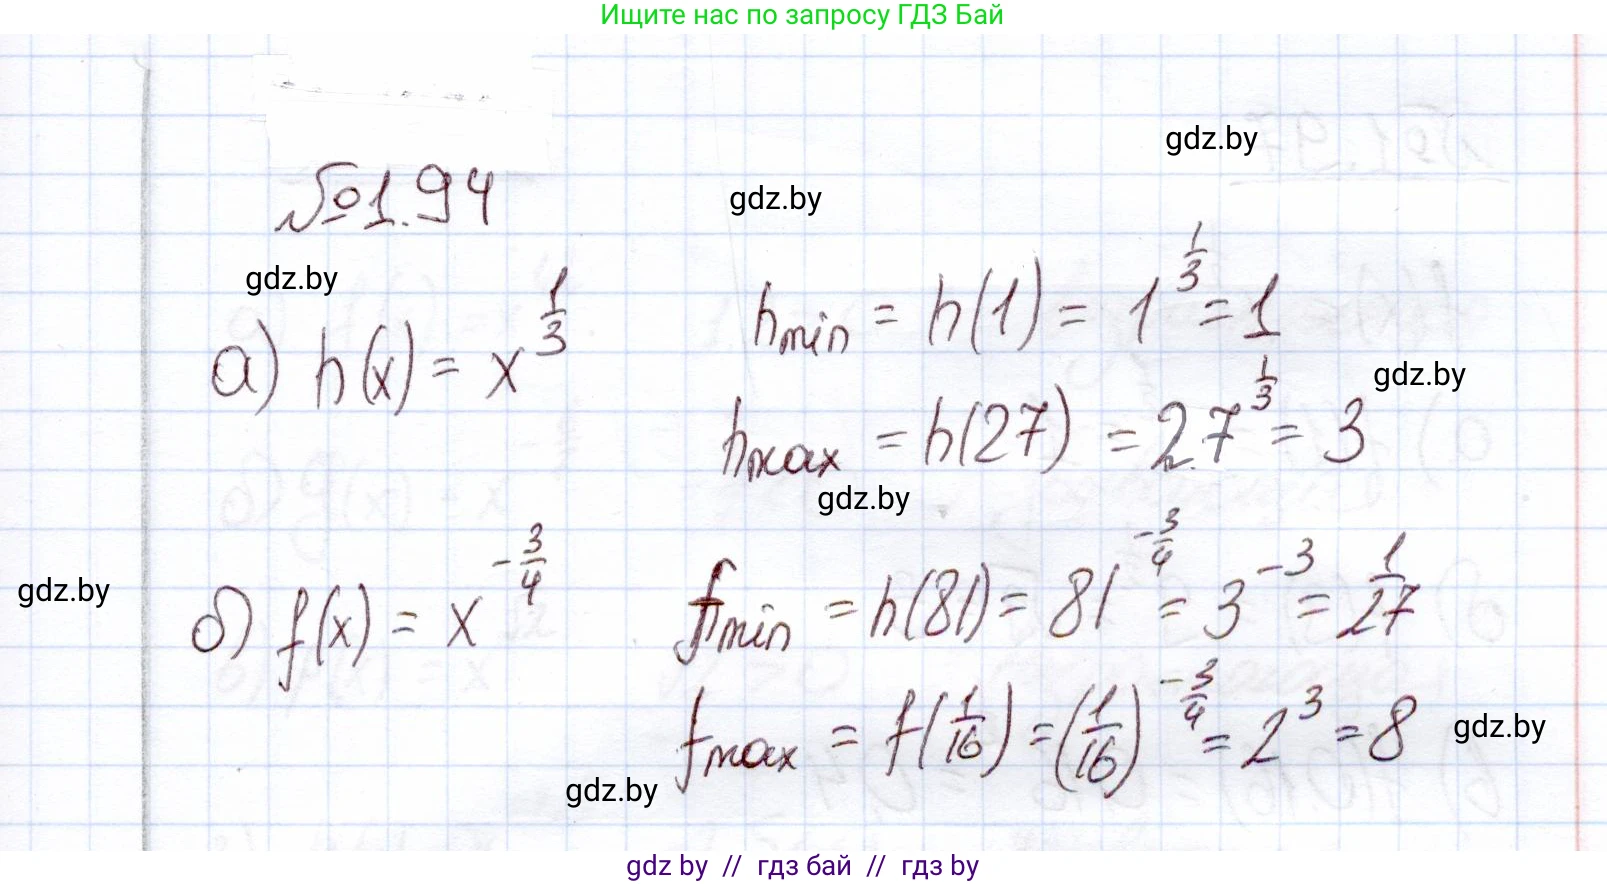 Ищите нас по запросу ГДЗ Бай
gdz.by
№1.94
gdz.by
gdz.by
а) h(x) = x^{\frac{1}{3}}
h_{min} = h(1) = 1^{\frac{1}{3}} = 1
gdz.by
h_{max} = h(27) = 27^{\frac{1}{3}} = 3
gdz.by
gdz.by
б) f(x) = x^{-\frac{3}{4}}
f_{min} = h(81) = 81^{-\frac{3}{4}} = 3^{-3} = \frac{1}{27}
f_{max} = f(\frac{1}{16}) = (\frac{1}{16})^{-\frac{3}{4}} = 2^3 = 8
gdz.by
gdz.by
gdz by // гдз бай // гдз by